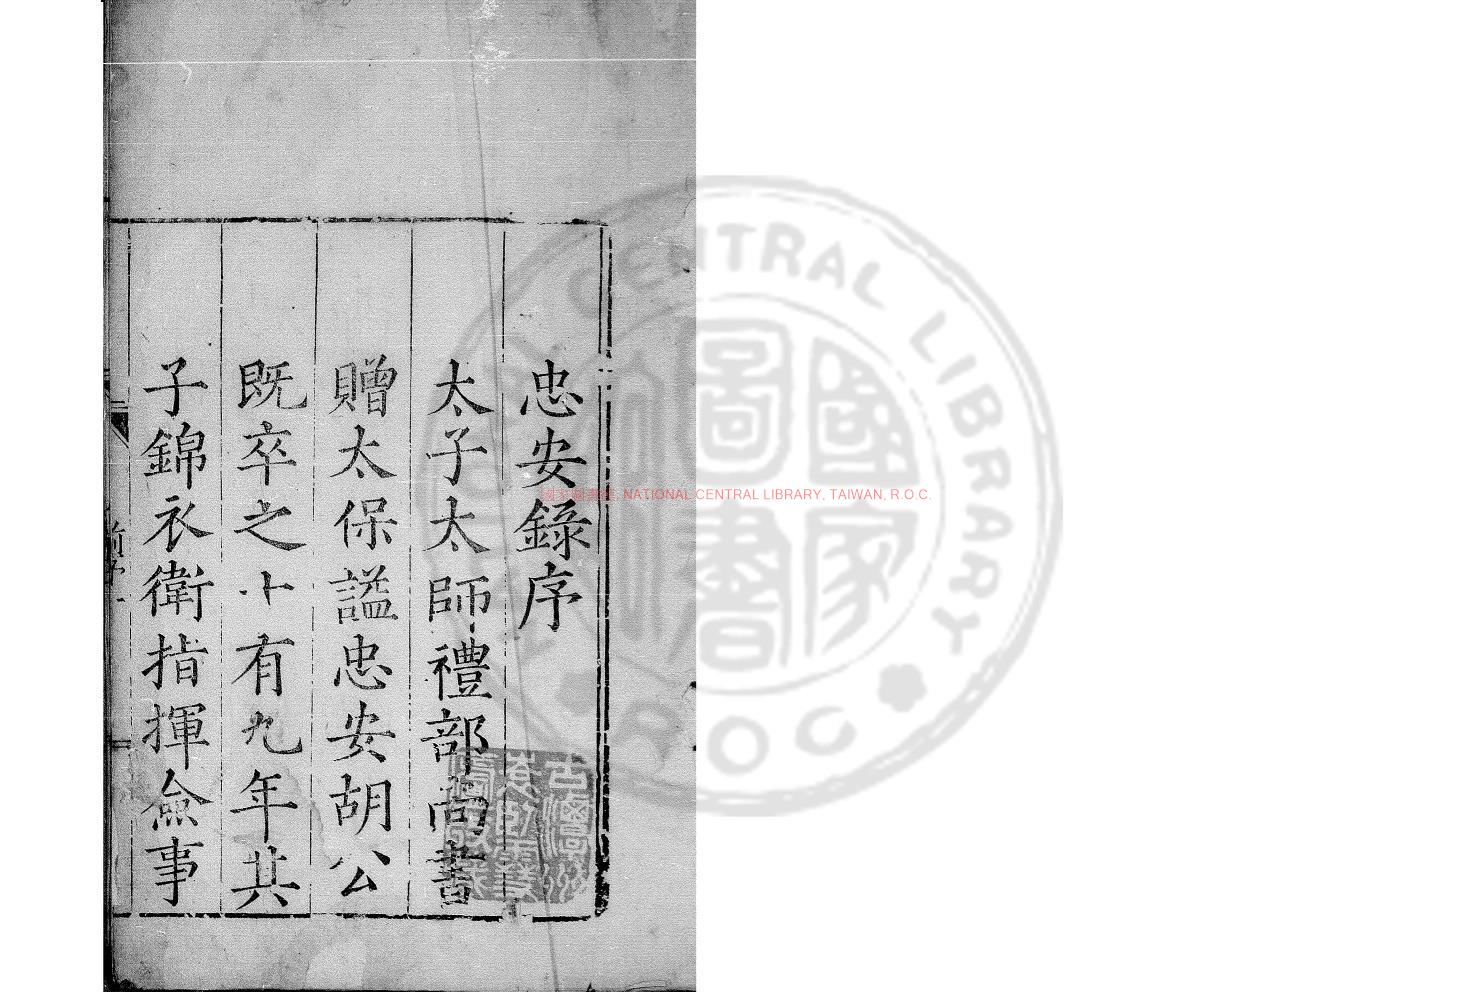 忠安錄序
太子太師禮部尚書
贈太保謚忠安胡公
既卒之十有九年其
子錦衣衛指揮僉事
國家圖書館, NATIONAL CENTRAL LIBRARY, TAIWAN, R.O.C.
CENTRAL LIBRARY
ROC
國家圖書